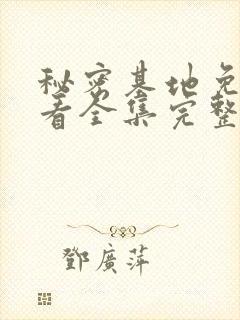 秘密基地免
看全集完整
鄧廣萍